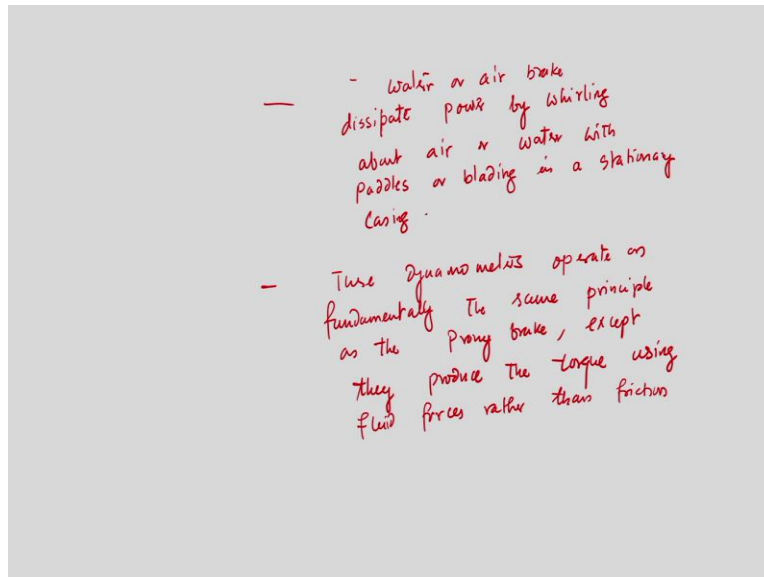 - water or air brake
— dissipate power by whirling
about air or water with
paddles or blading in a stationary
casing.
- These dynamometers operate on
fundamentally the same principle
as the Prony brake, except
they produce the torque using
fluid forces rather than friction